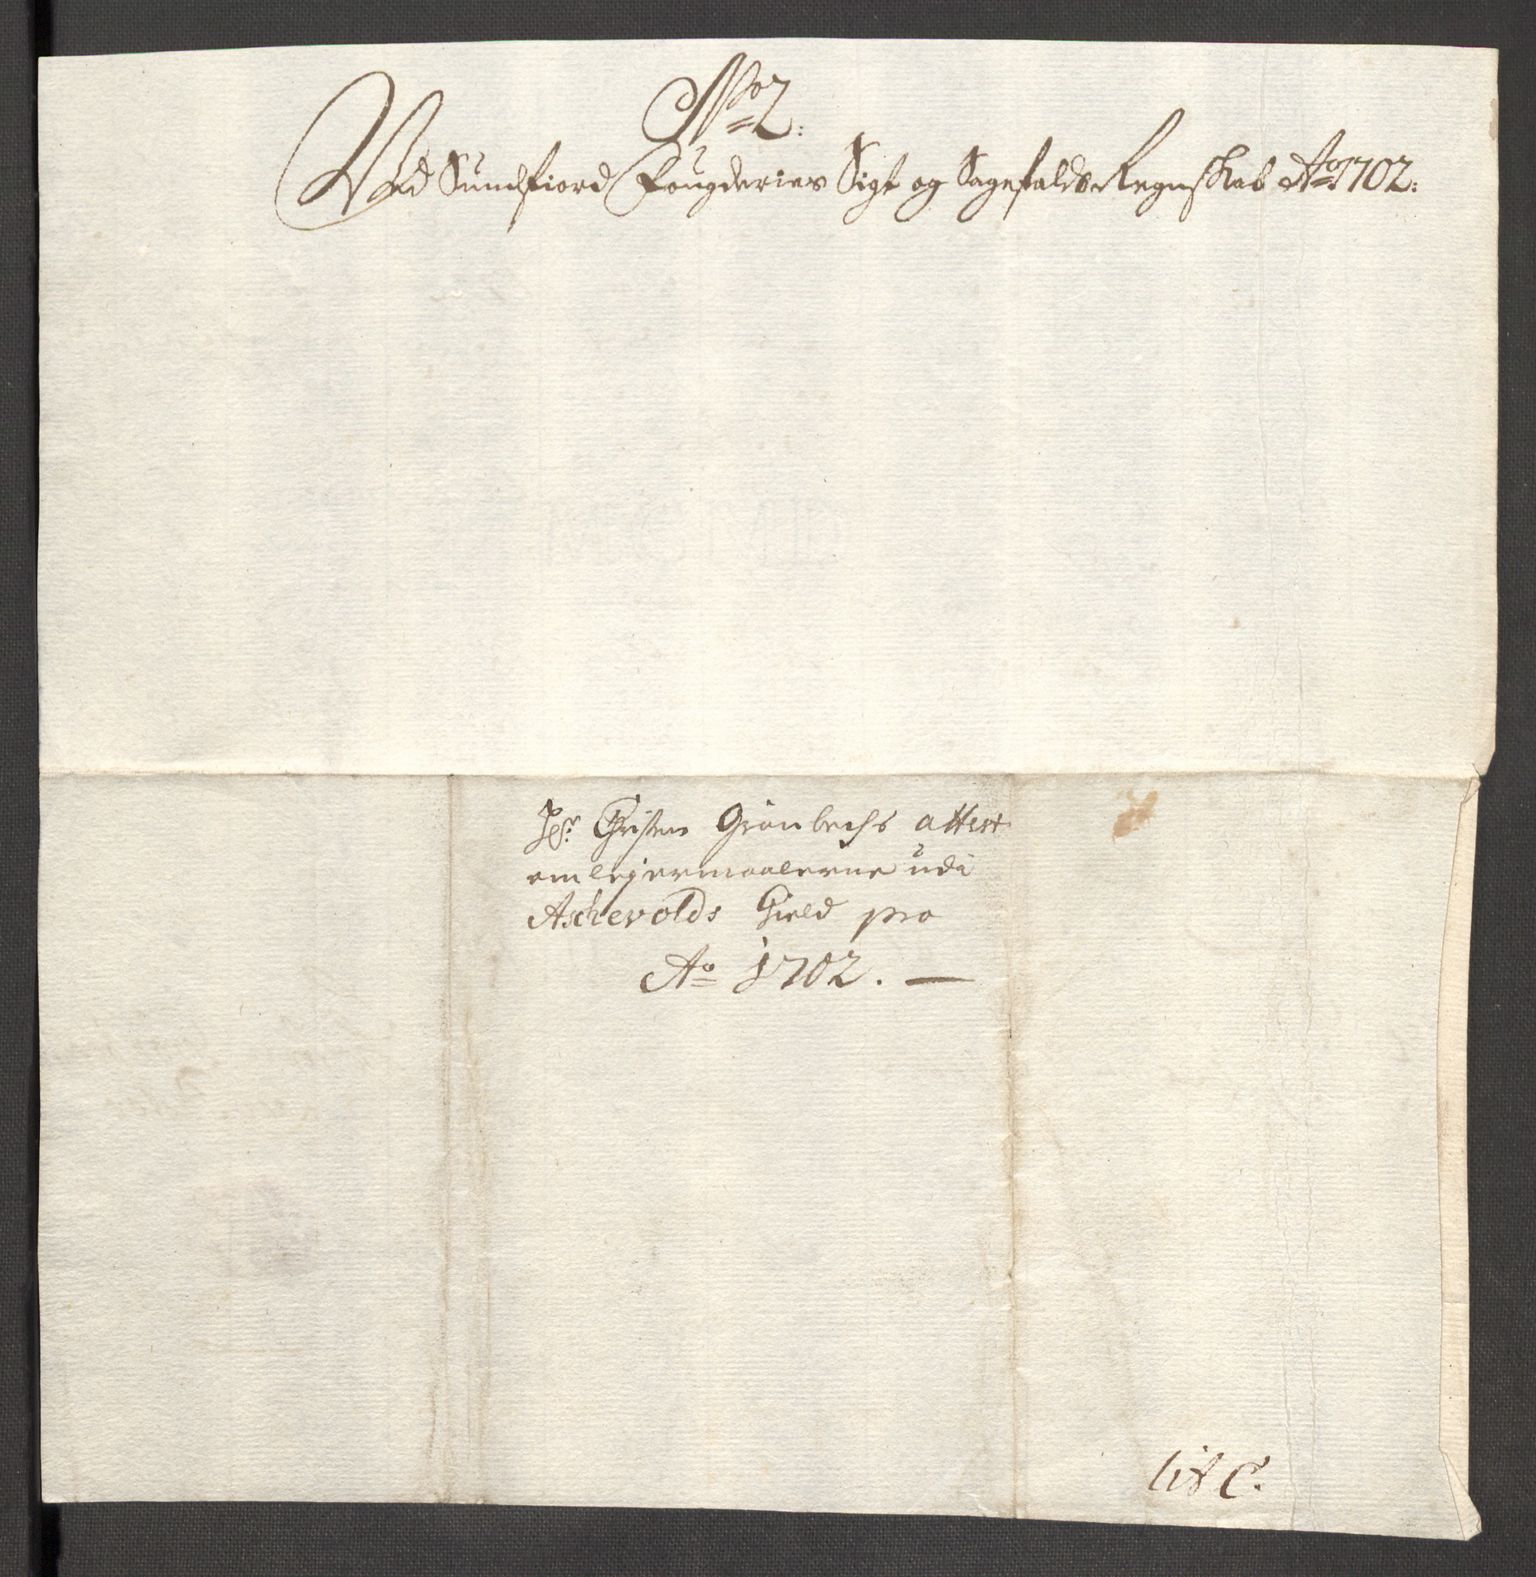 No 2:
Ved Sundfiord Fougderies Sigt og Sagefalds Regnskab Ao 1702:
Hr. Christen Grönbechs attest
om lejermaalerne udi
Aschevolds Gield pro
Ao 1702. —
lit C.